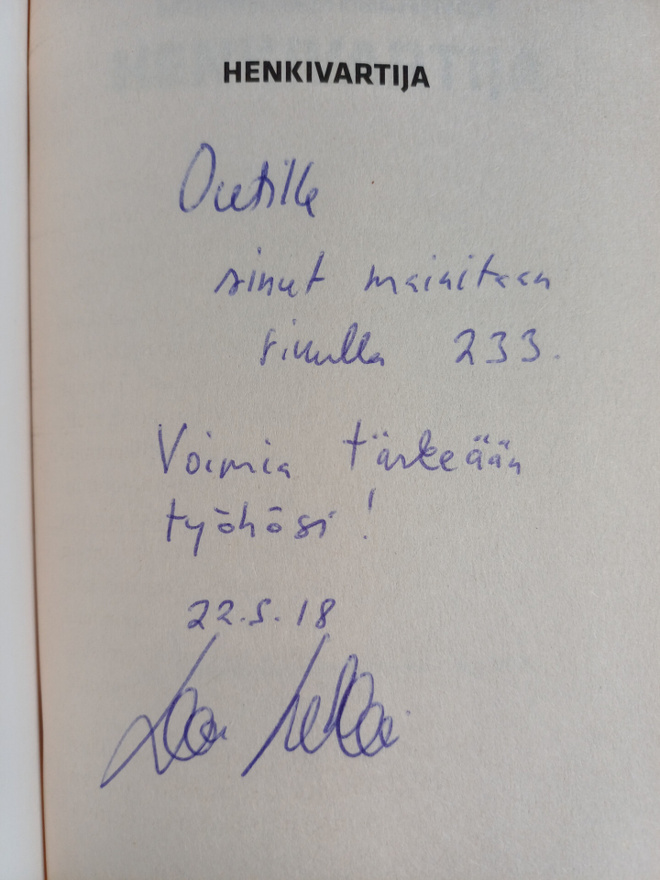 HENKIVARTIJA
Outille
sinut mainitaan
sivulla 233.
Voimia tärkeään
työhösi!
22.5.18